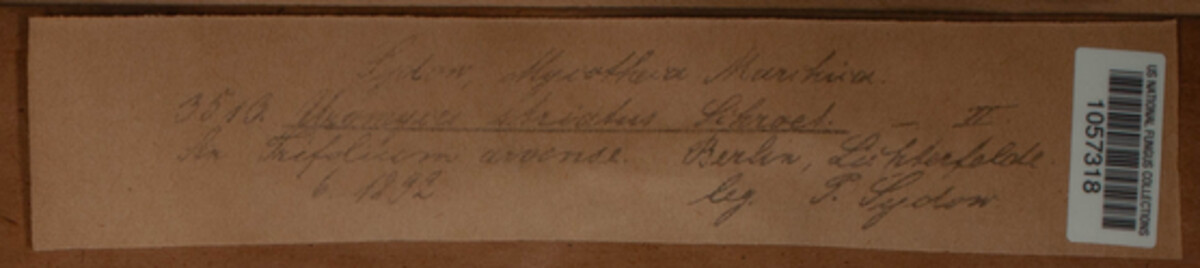 Sydow, Mycotheca Marchica.
3513. Uromyces striatus Schroet. — II.
An Trifolium arvense. Berlin, Lichterfelde
6. 1892 leg. P. Sydow
US NATIONAL FUNGUS COLLECTIONS
1057318